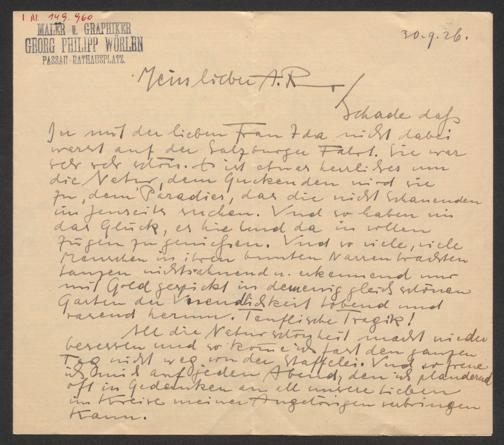 I N. 149.960
MALER u. GRAPHIKER
GEORG PHILIPP WÖRLEN
PASSAU-RATHAUSPLATZ.
30.9.26.
Mein lieber A. R.
Schade daß
Du mit der lieben Frau Ida nicht dabei
warst auf der Salzburger Fahrt. Sie war
sehr sehr schön. Es ist etwas herrliches um
die Natur, dem Guckenden wird sie
zu, dem Paradies, das die nicht Schauenden
im Jenseits suchen. Und so haben wir
das Glück, es hie und da in vollen
Zügen zu genießen. Und so viele, viele
Menschen in ihren bunten Narrentrachten
tanzen nichtsahnend u. erkennend nur
mit Gold gespickt in demenig gleich schönen
Garten der Unendlichkeit tobend und
rasend herum. Teuflische Tragik!
All die Naturschönheit macht wieder
besessen und so komme ich fast den ganzen
Tag nicht weg von der Staffelei. Und so freue
ich mich auf jeden Abend, den ich plaudernd
oft in Gedanken an all unsere Lieben
im Kreise meiner Angehörigen verbringen
kann.